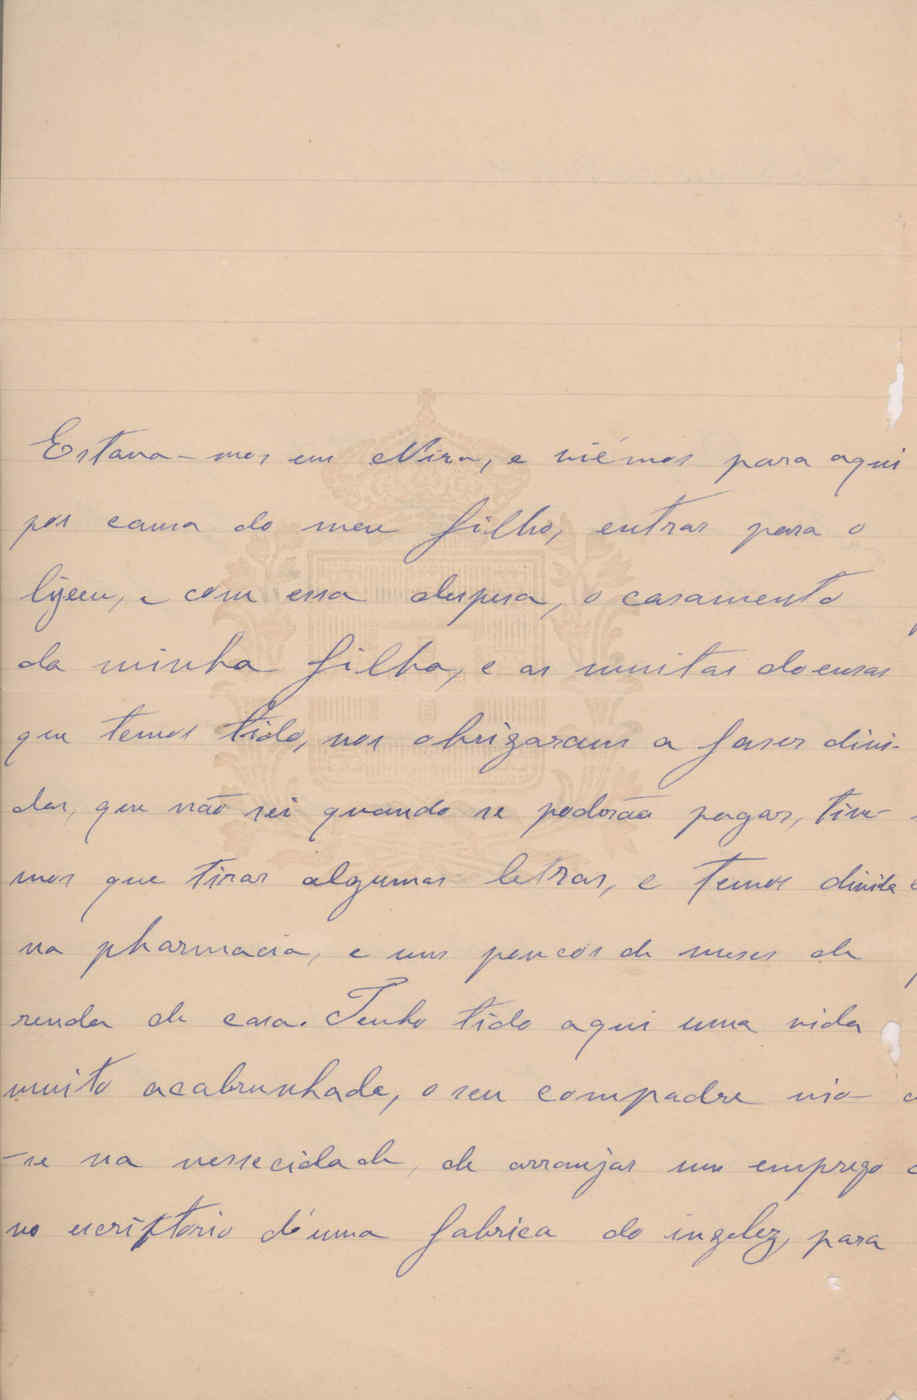 Estava-mos em Mira, e viémos para aqui
por causa do meu filho, entrar para o
lyceu, e com essa despesa, o casamento
da minha filha, e as muitas doensas
que temos tido, nos obrigaram a faser divi-
das, que não sei quando se poderão pagar, tive-
mos que tirar algumas letras, e temos divida
na pharmacia, e uns poucos de meses de
renda de casa. Tenho tido aqui uma vida
muito acabrunhada, o seu compadre vio-
-se na nessecidade, de arranjar um emprego
no escriptorio d'uma fabrica do ingelez, para